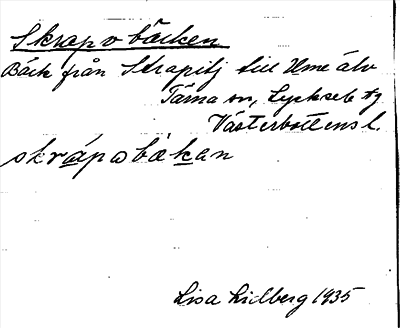 Skrapvbäcken
Bäck från Skrapitj till Ume älv
Tärna sn, Lycksele tg
Västerbottens l.
skrápabäkan
Lisa Lidberg 1935